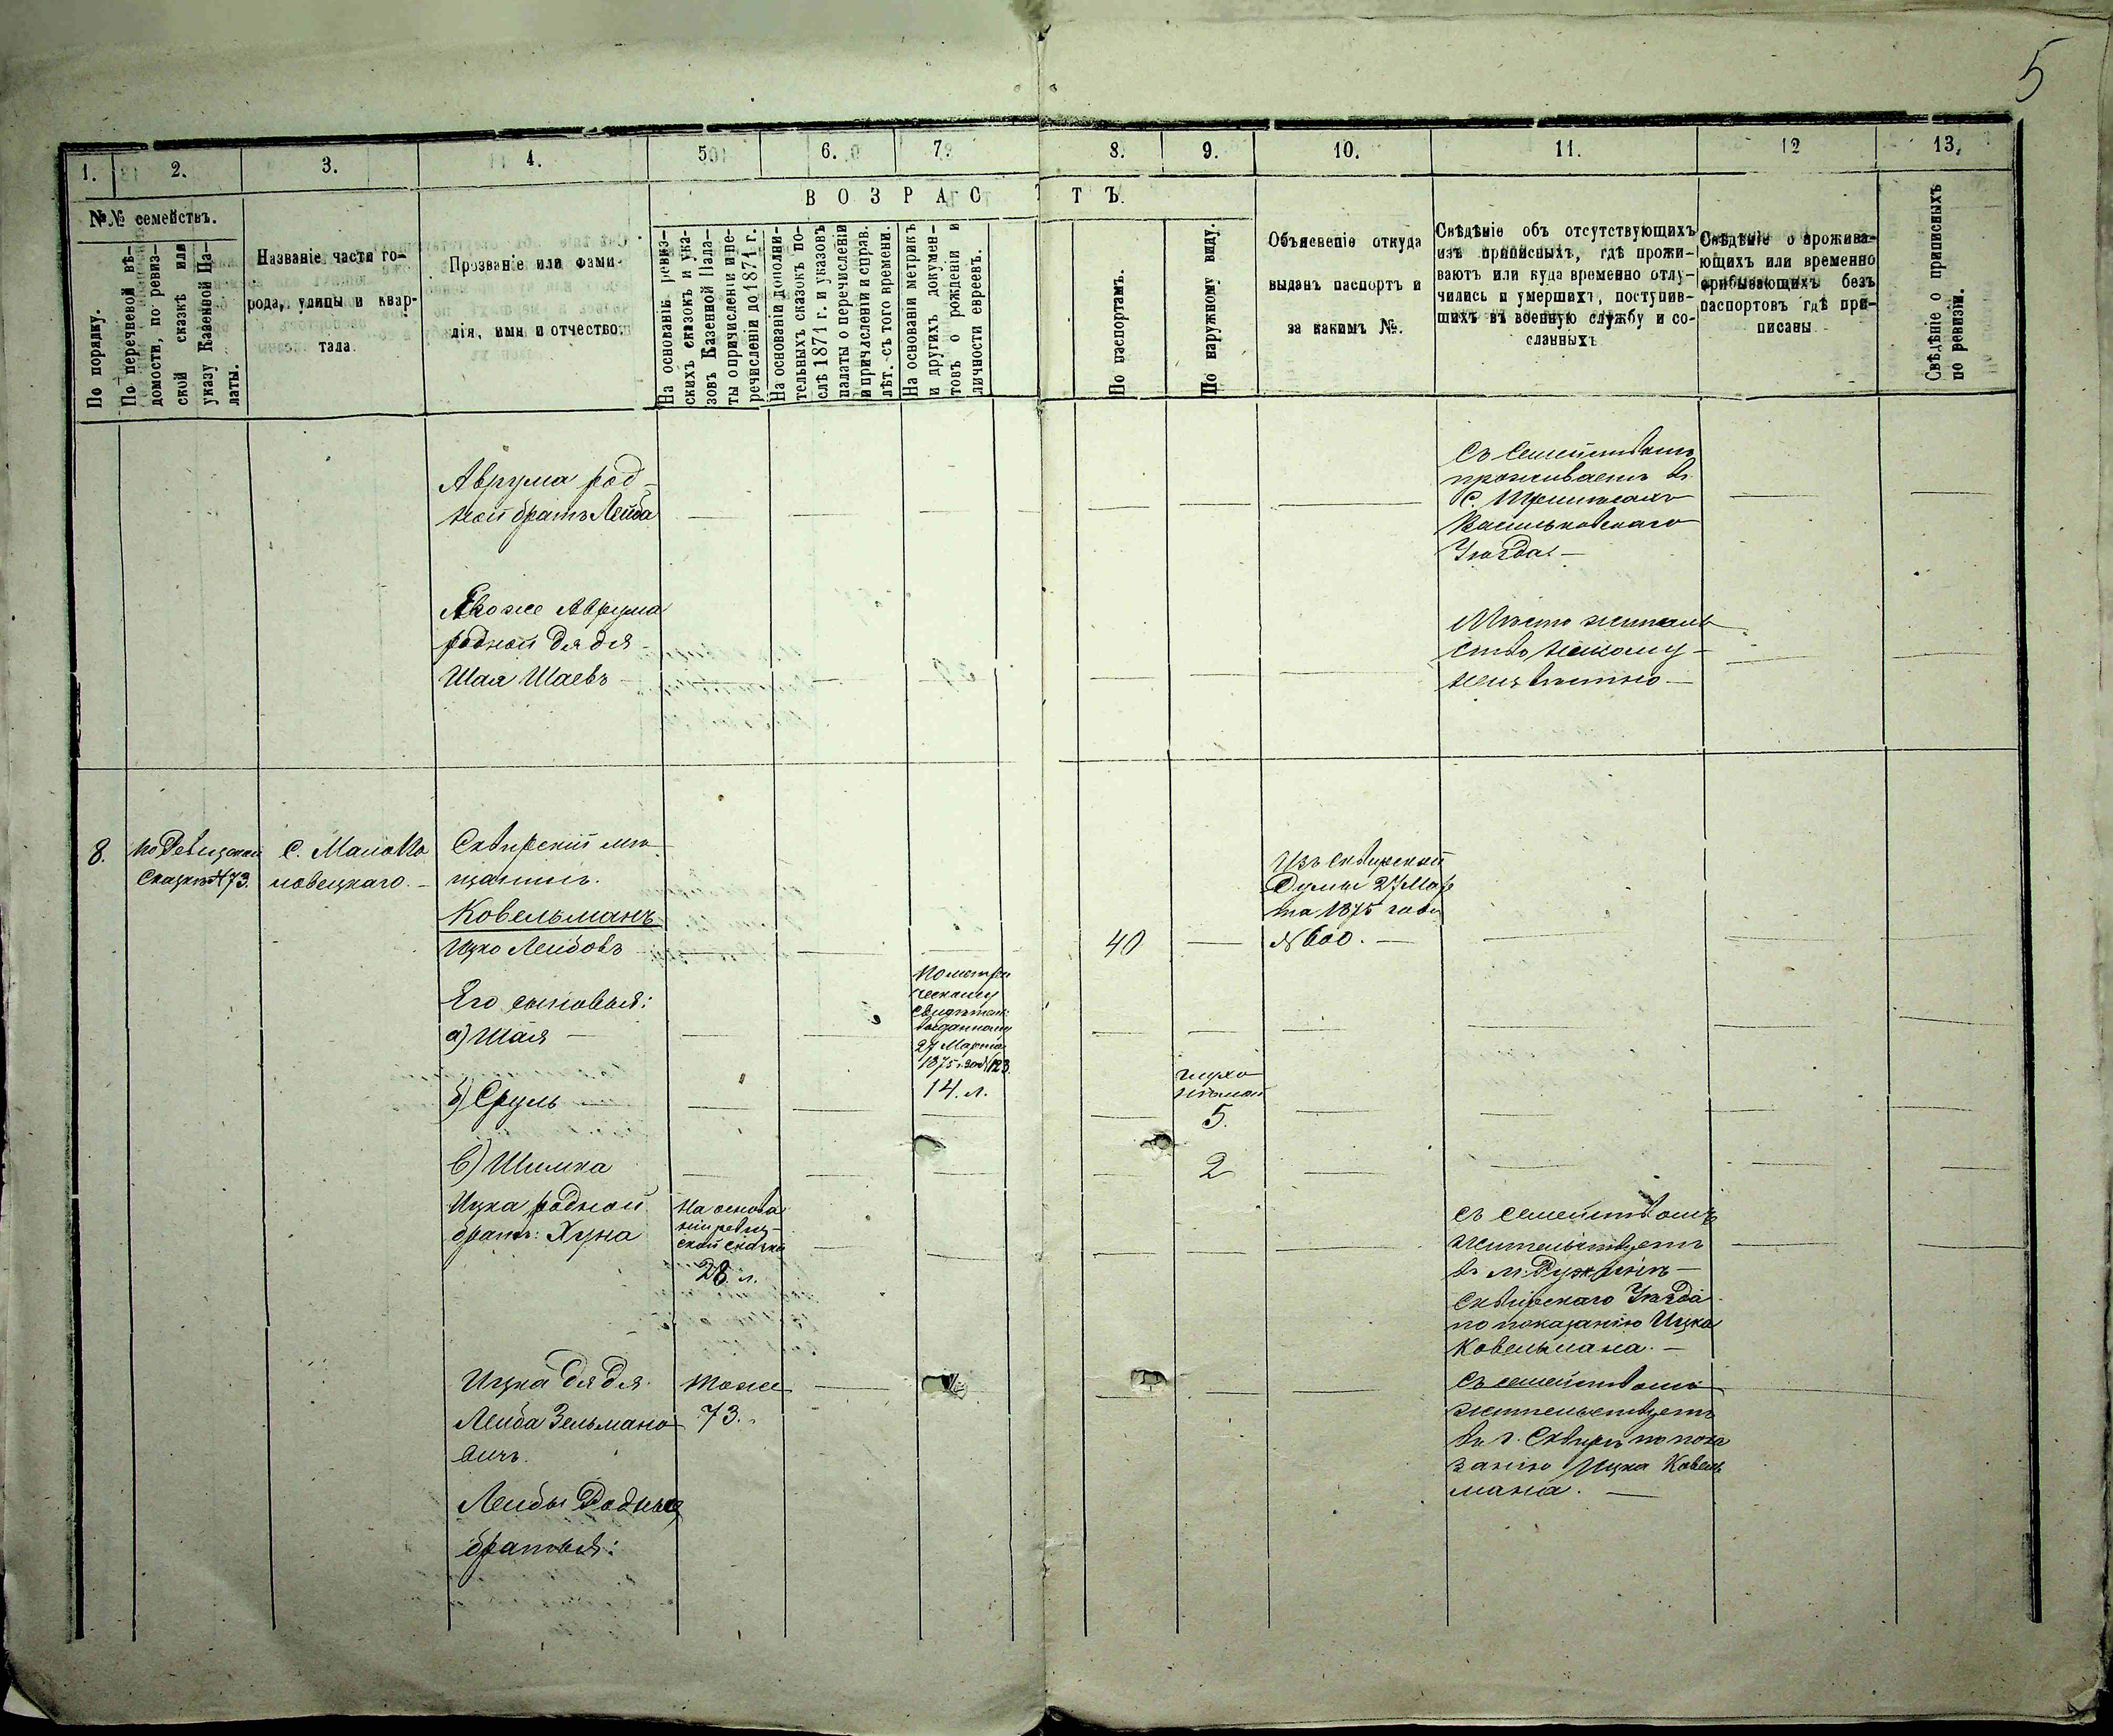 5
1.
2.
3.
4.
5
6.
7.
8.
9.
10.
11.
12
13.
ВОЗРАСТЪ.
№№ семействъ.
По порядку.
По перечневой вѣ-
домости, по ревиз-
ской сказкѣ или
указу Казенной Па-
латы.
Названіе части го-
рода, улицы и квар-
тала.
Прозваніе или фами-
лія, имя и отчество.
На основаніи ревиз-
скихъ сказокъ и ука-
зовъ Казенной Пала-
ты о причисленіи и пе-
речисленіи до 1871 г.
На основаніи дополни-
тельныхъ сказокъ по-
слѣ 1871 г. и указовъ
палаты о перечисленіи
и причисленіи и справ.
лѣт. съ того времени.
На основаніи метрикъ
и другихъ докумен-
товъ о рожденіи и
личности евреевъ.
По паспортамъ.
По наружному виду.
Объясненіе откуда
выданъ паспортъ и
за какимъ №.
Свѣдѣніе объ отсутствующихъ
изъ приписныхъ, гдѣ прожи-
ваютъ или куда временно отлу-
чились и умершихъ, поступив-
шихъ въ военную службу и со-
сланныхъ
Свѣдѣніе о прожива-
ющихъ или временно
прибывающихъ безъ
паспортовъ гдѣ при-
писаны
Свѣдѣніе о приписныхъ
по ревизіи.
Аврума род-
ной братъ Лейба
Съ семействомъ
проживаетъ въ
С.
Васильковскаго
Уѣзда. —
Его же Аврума
родной дядя
Шая Шаевъ
Мѣсто житель
ство
неизвѣстно. —
8.
по Ревизской
Сказкѣ № 73.
С. Мало По
ловецкаго. —
Сквирскій мѣ
щанинъ.
Ковельманъ
Ицко Лейбовъ
40
Изъ Сквирской
Думы 27 Мар
та 1875 года
№ 600. —
Его сыновья:
а) Шая —
По метри
ческому
свидѣтель:
выданному
27 Марта
1875 года № 123.
14. л.
б) Сруль —
глухо
нѣмой
5.
в) Шимка
2
Ицка родной
братъ: Хуна
На основа
ніи ревиз-
ской сказки
28 л.
Съ семействомъ
жительствуетъ
въ м. Ружинѣ —
Сквирскаго Уѣзда
по показанію Ицка
Ковельмана. —
Ицка дядя
Лейба Зельмано
вичъ.
Тоже
73.
Съ семействомъ
жительствуетъ
въ г. Сквирѣ по пока
занію Ицка Ковель
мана. —
Лейбы Родные
братья: